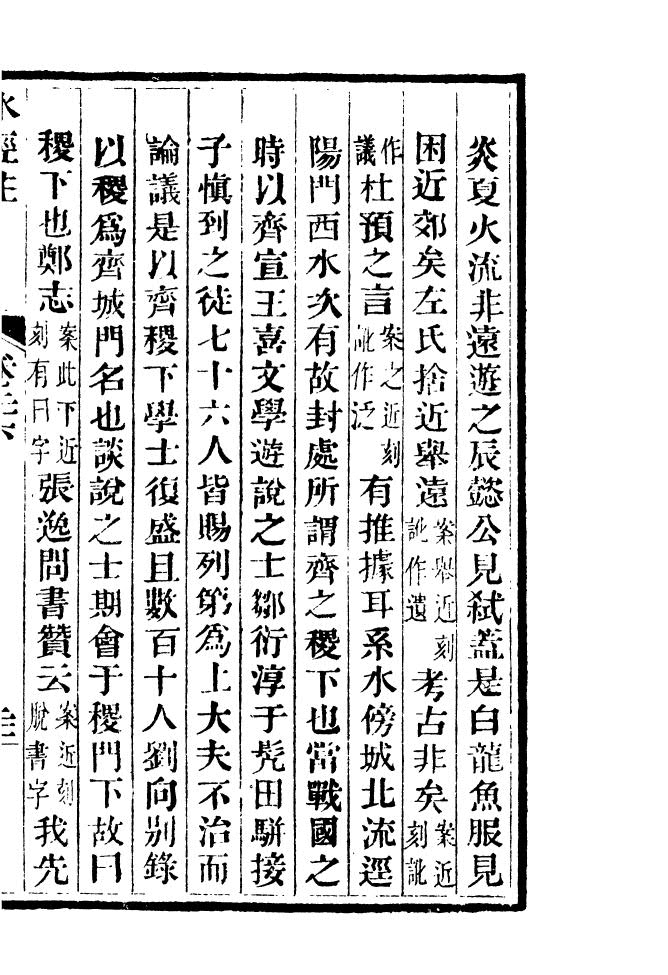 炎夏火流非遠遊之辰懿公見弑蓋是白龍魚服見
困近郊矣左氏捨近舉遠案舉近刻訛作遺考古非矣案近刻訛
作議杜預之言案之近刻訛作泛有推據耳系水傍城北流逕
陽門西水次有故封處所謂齊之稷下也當戰國之
時以齊宣王喜文學遊說之士鄒衍淳于髡田駢接
子慎到之徒七十六人皆賜列第爲上大夫不治而
論議是以齊稷下學士復盛且數百十人劉向别錄
以稷爲齊城門名也談說之士期會于稷門下故曰
稷下也鄭志案此下近刻有曰字張逸問書贊云案近刻脫書字我先
水經注 卷二十六